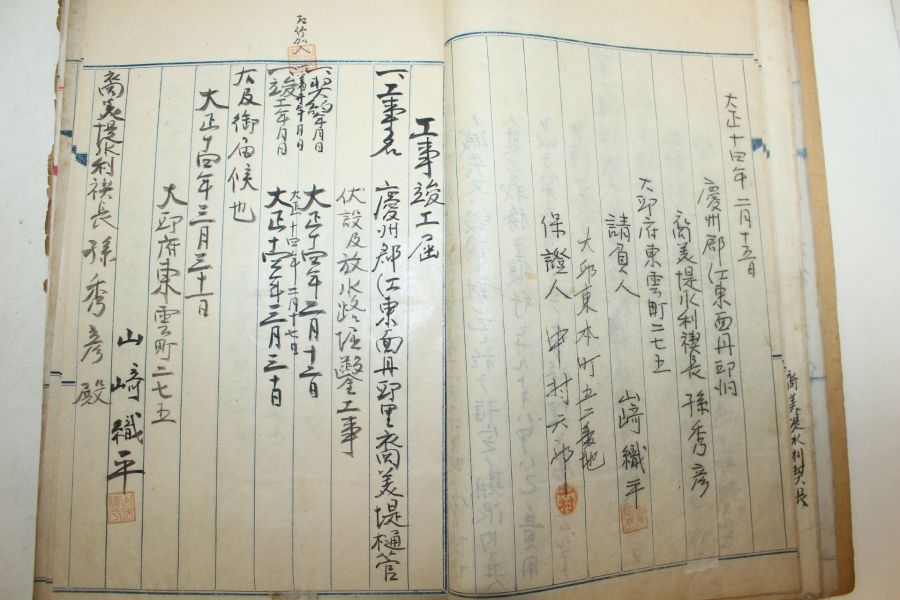 大正十四年二月十五日
慶州郡江東面丹邱洞
喬美堤水利禊長 孫秀彦
大邱府東雲町二七五
請負人 山﨑織平
大邱東本町五二番地
保證人 中村
工事竣工届
一、工事名 慶州郡江東面丹邱里喬美堤樋管
伏設及放水路堀鑿工事
一、契約年月日 大正十四年二月十二日
一、着手年月日 大正十四年二月十七日
一、竣工年月日 大正十四年三月三十日
右及御届候也
大正十四年三月三十一日
大邱府東雲町二七五
山﨑織平
喬美堤水利禊長 孫秀彦殿